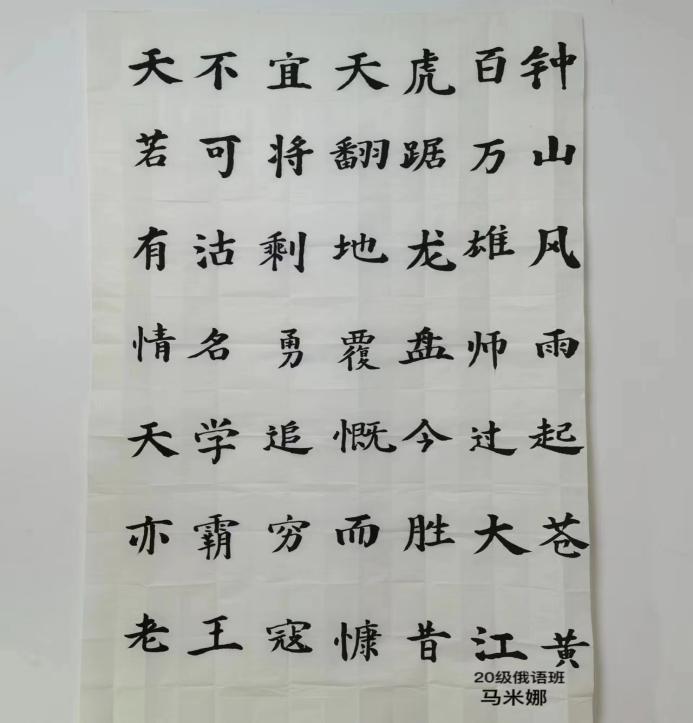 钟山风雨起苍黄
百万雄师过大江
虎踞龙盘今胜昔
天翻地覆慨而慷
宜将剩勇追穷寇
不可沽名学霸王
天若有情天亦老
20级俄语班
马米娜